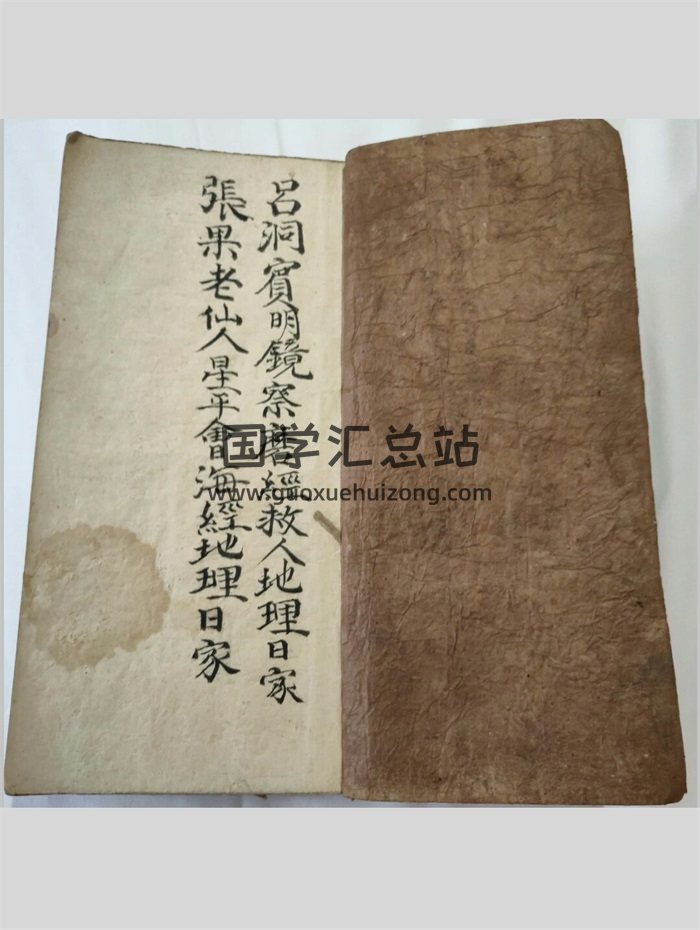 呂洞賓明鏡察磨經救人地理日家
張果老仙人星平會海經地理日家
国学汇总站
www.guoxuehuizong.com